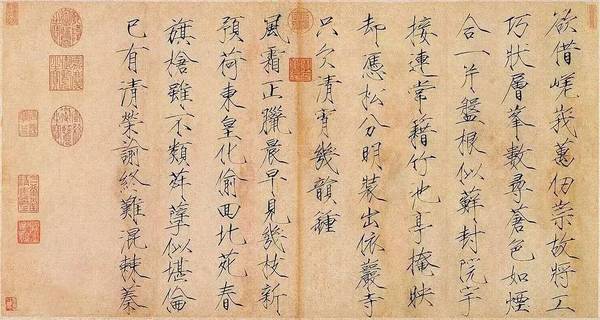 欲借嵯峩萬仞崇故將工
巧狀層峯數尋蒼色如煙
合一片盤根似蘚封院宇
接連常藉竹池亭掩映
却憑松分明裝出依巖寺
只欠清宵幾韻種
風霜正臘晨早見幾枝新
預荷東皇化偷回北苑春
旗槍雖不類荈孽似堪倫
已有清榮諭終難混棘蓁